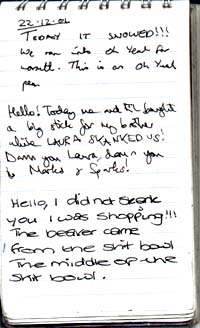 22.12.04
TODAY IT SNOWED!!!
We ran into Oh Yeah for
This is an Oh Yeah
pen.
Hello! Today me and bought
a big stick for my brother
while LAURA SKANKED US!
Damn you Laura, damn you
to Marks & Sparks!
Hello, I did not skank
you I was shopping!!!
The beaver came
from the shit bowl
The middle of the
shit bowl.